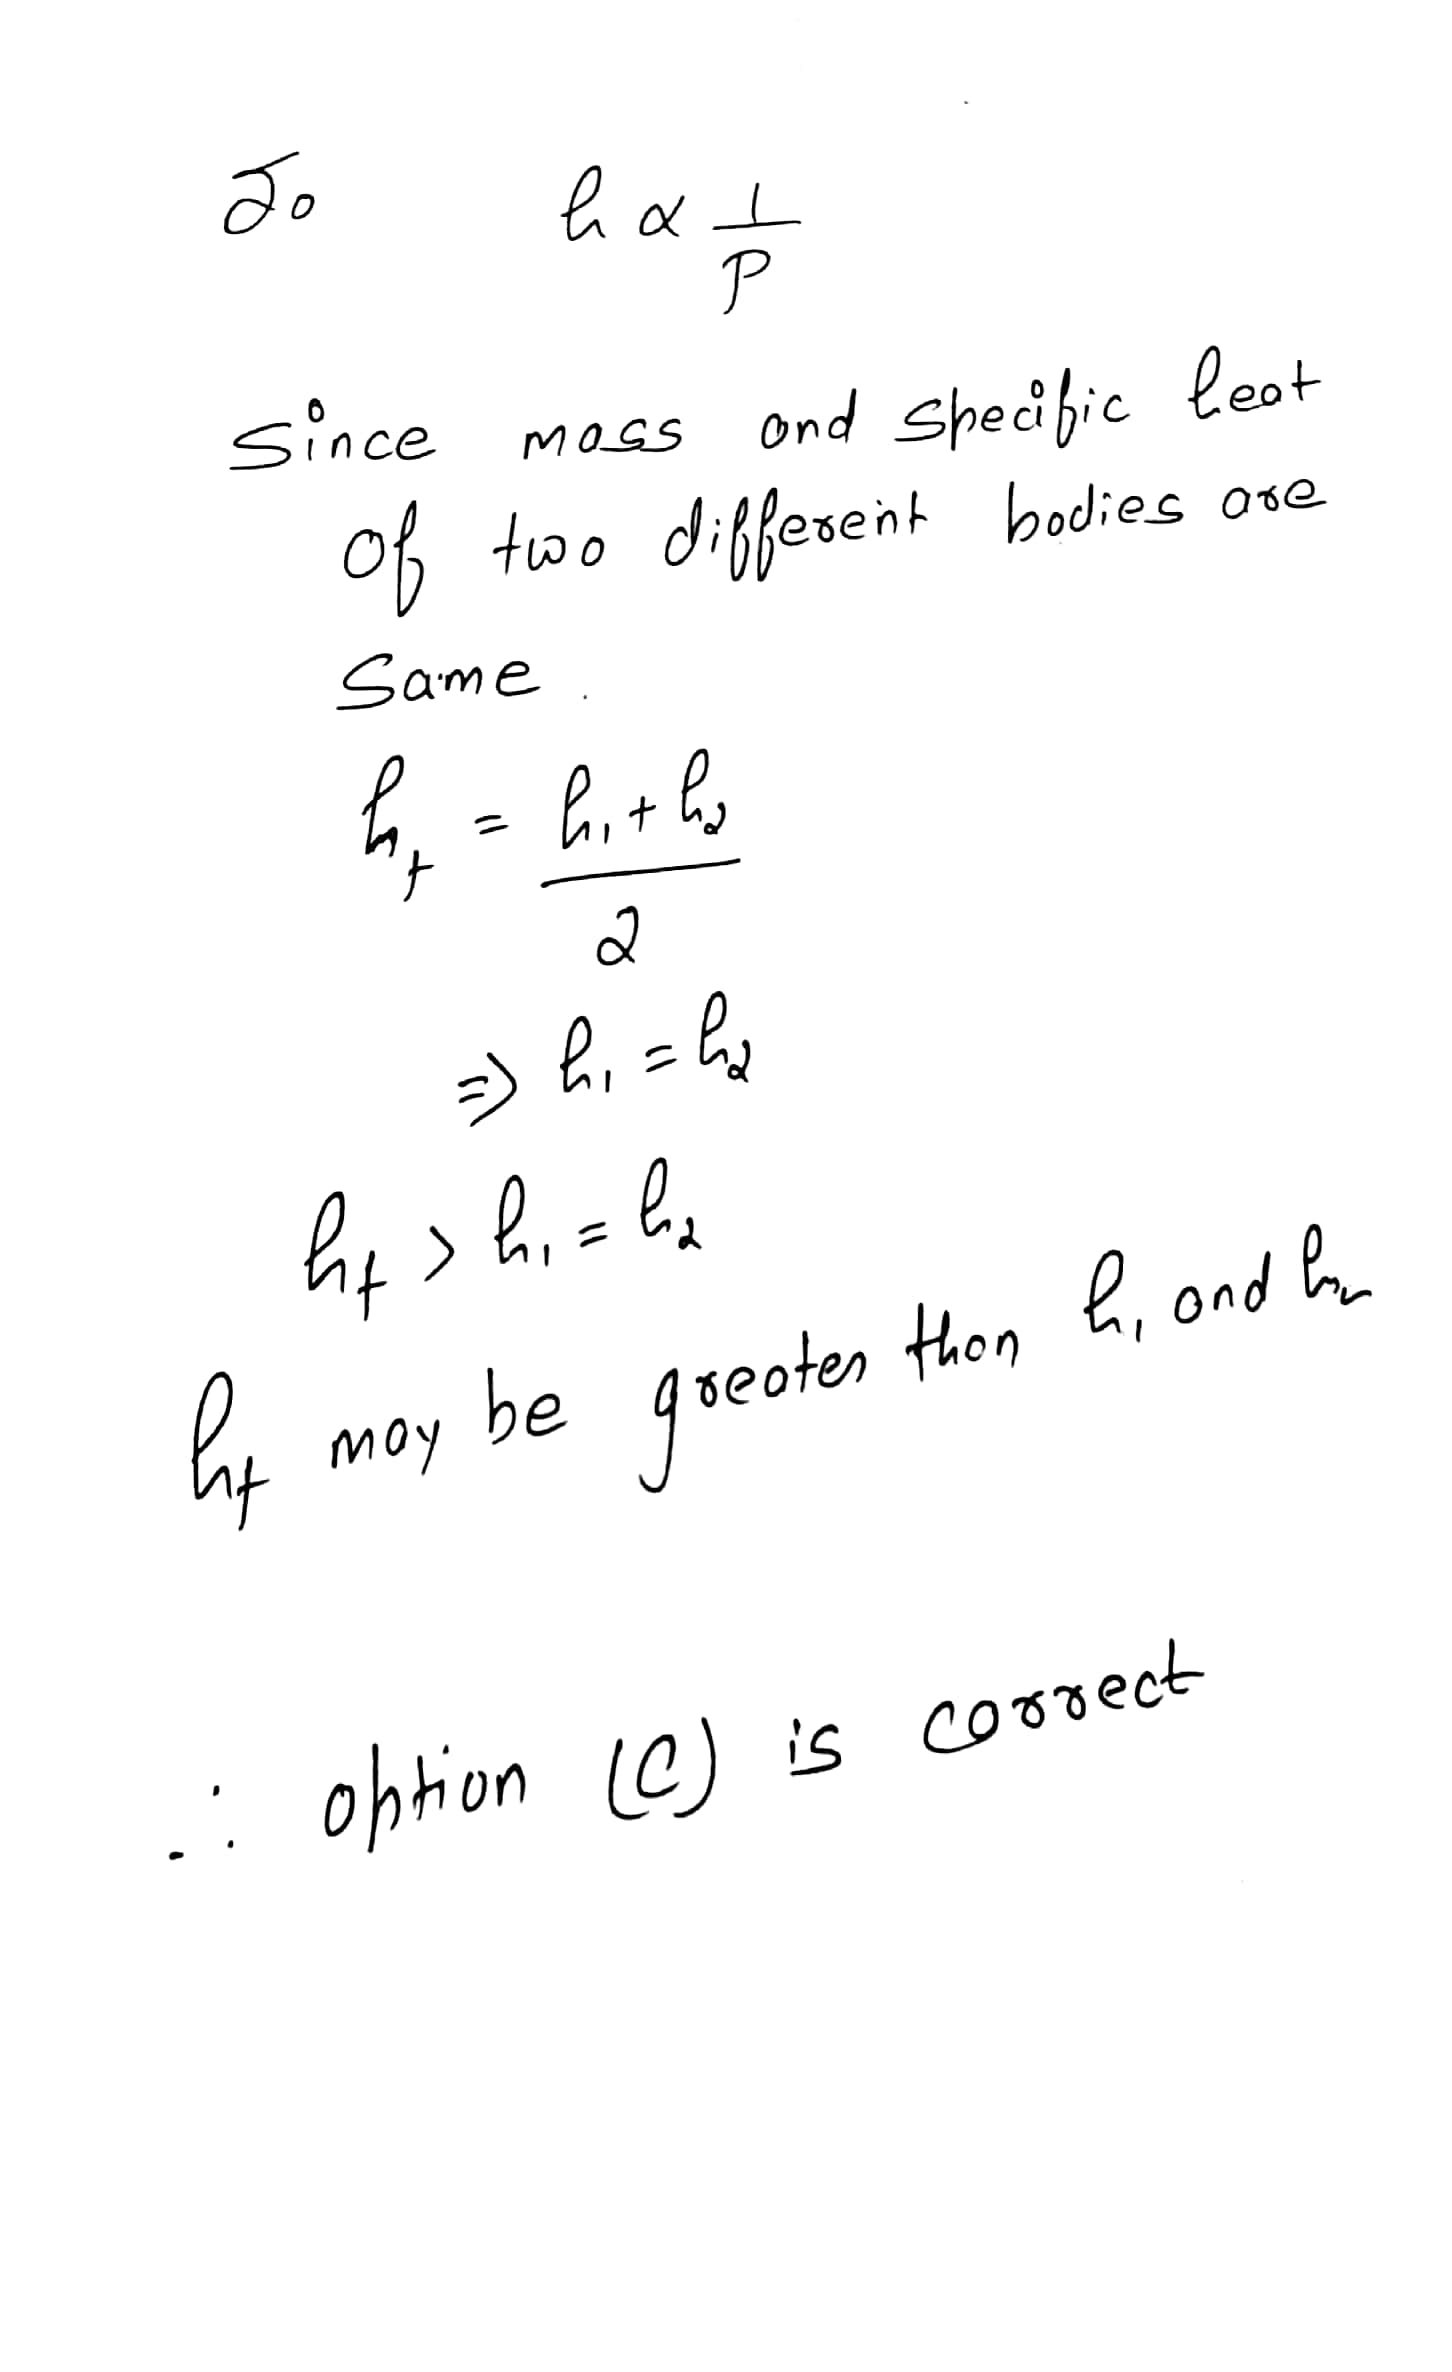 So h α 1/P
Since mass and specific heat
of two different bodies are
Same.
h_f = h₁ + h₂ / 2
⇒ h₁ = h₂
h_f > h₁ = h₂
h_f may be greater than h₁ and h₂
∴ option (C) is correct